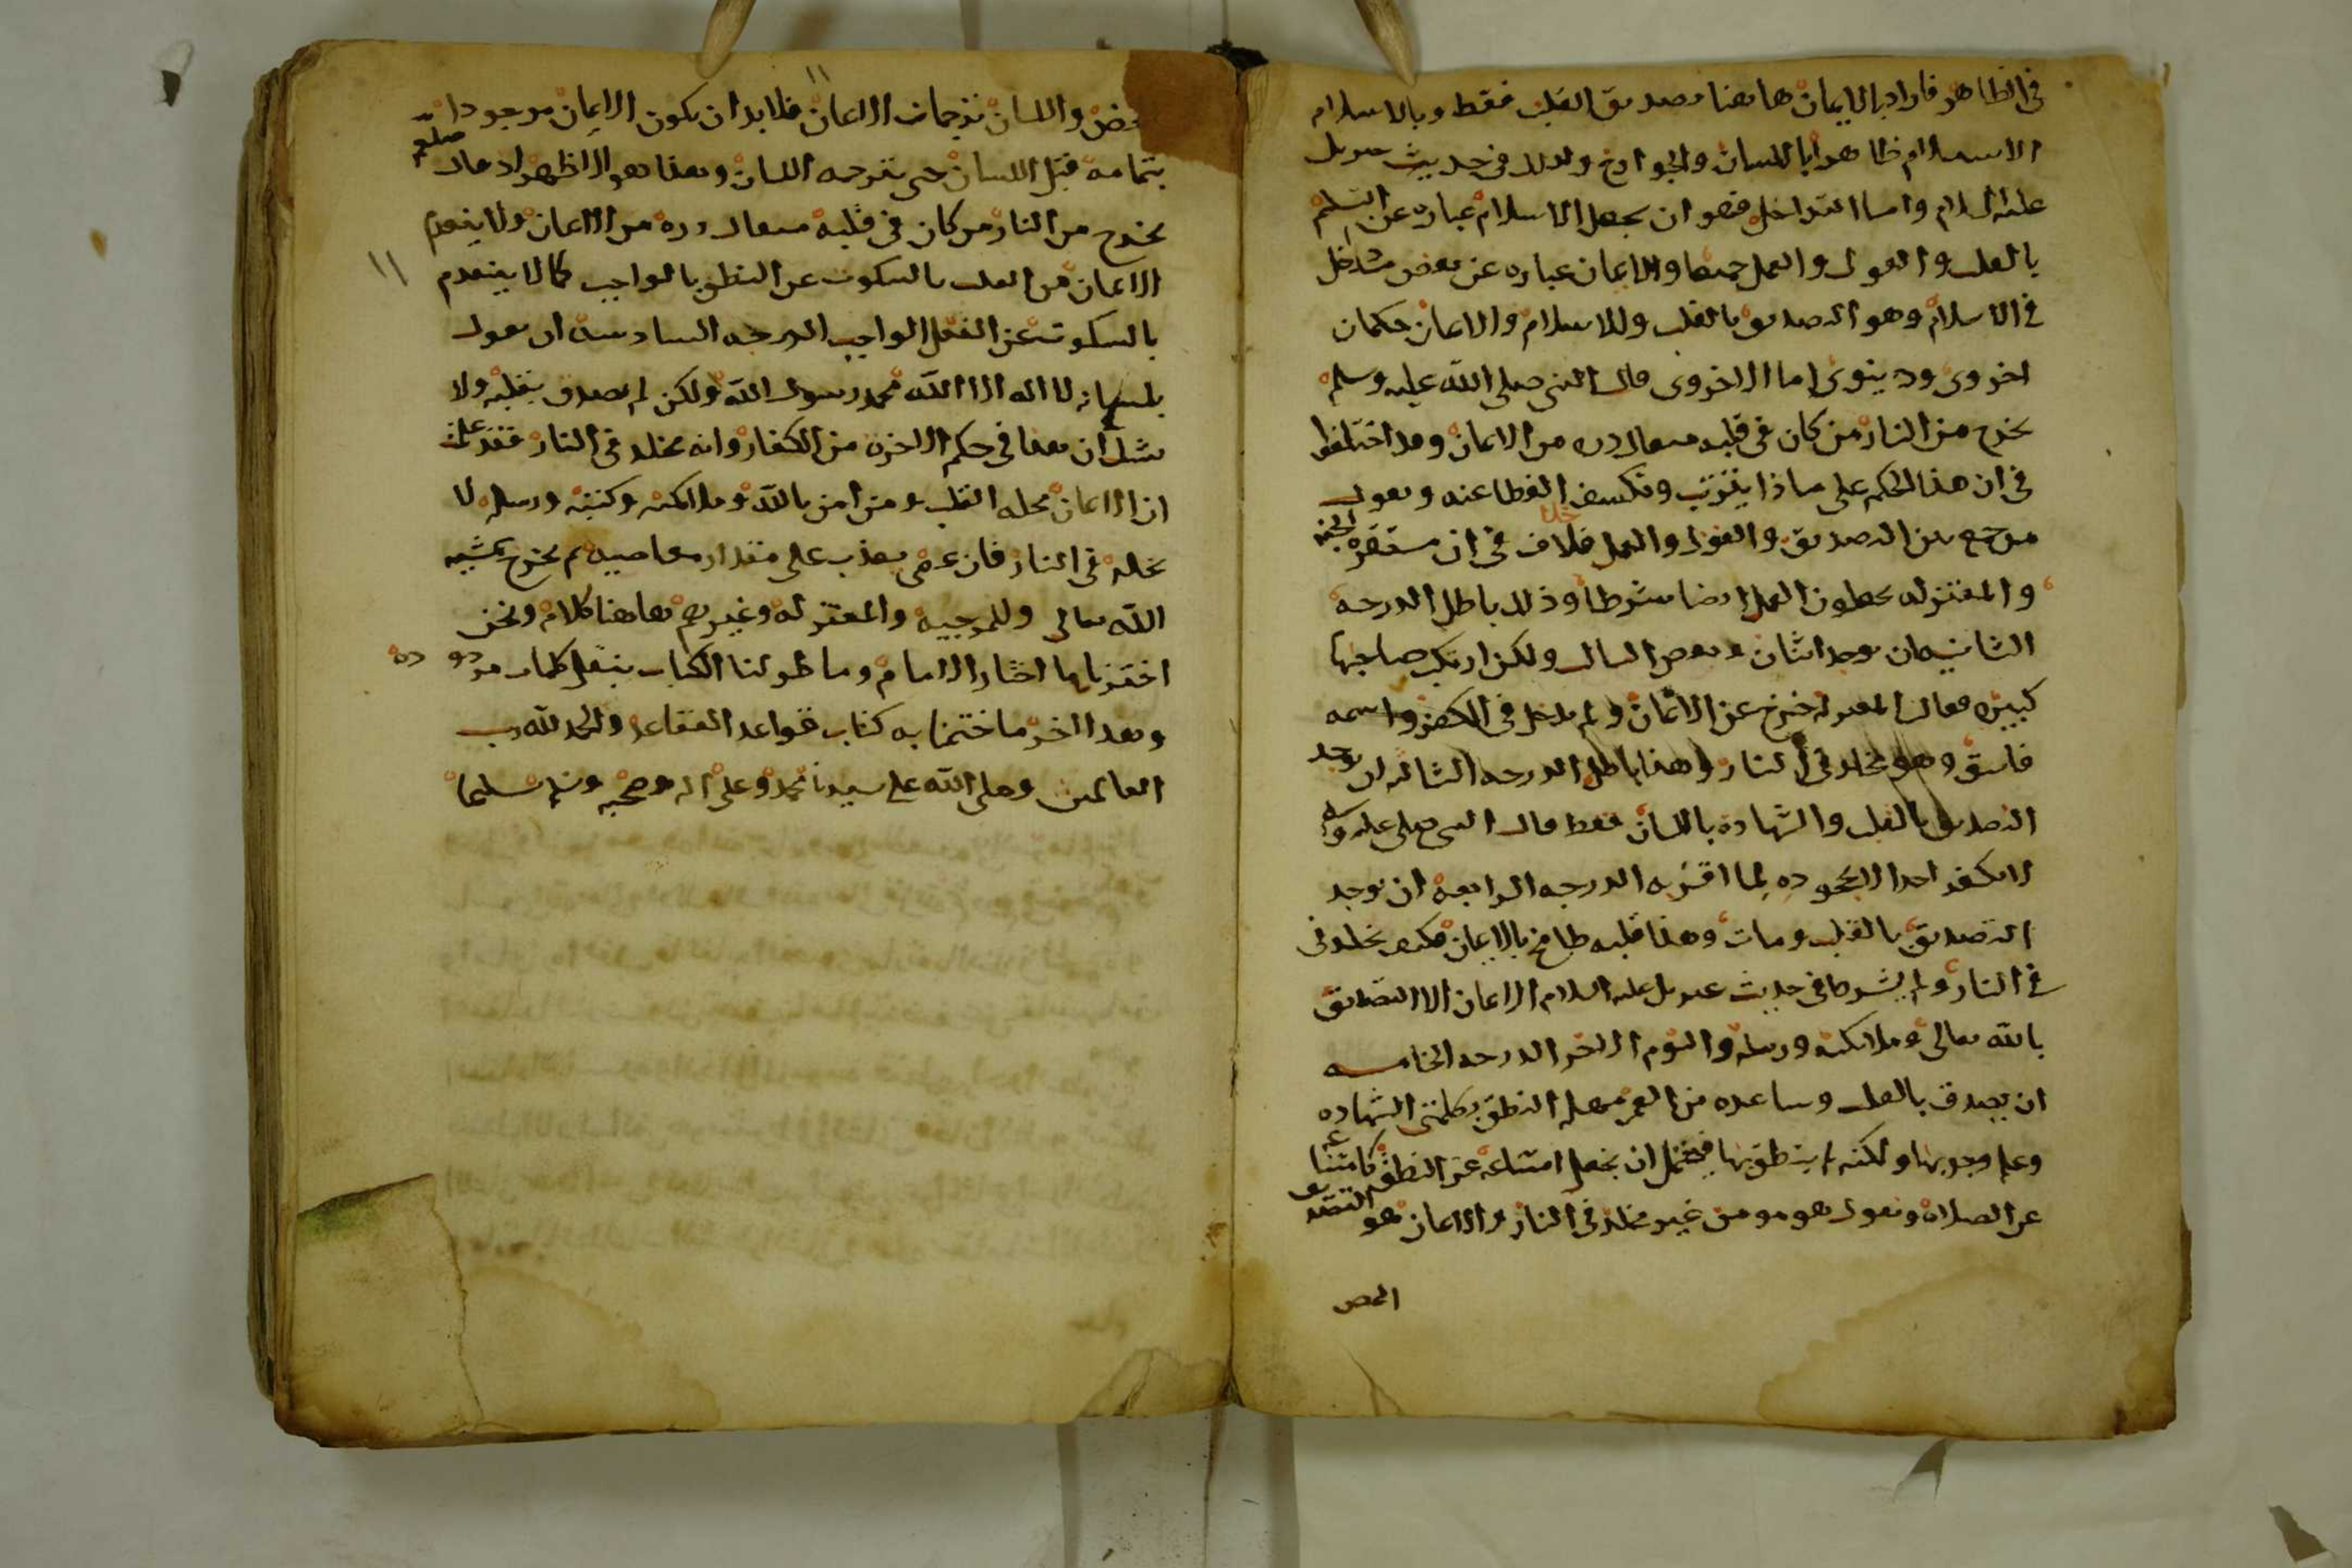 في الظاهر فاراد بالايمان هاهنا تصديق القلب فقط وبالاسلام
الاستسلام ظاهرا باللسان والجوارح وذلك في حديث جبريل
عليه السلام واما التداخل فهو ان يجعل الاسلام عباره عن التسليم
بالقلب والقول والعمل جميعا والايمان عباره عن بعض ما دخل
في الاسلام وهو التصديق بالقلب وللاسلام والايمان حكمان
اخروي ودينوي اما الاخروي قال النبي صلى الله عليه وسلم
يخرج من النار من كان في قلبه مثقال ذره من الايمان وقد اختلفوا
في ان هذا الحكم على ماذا يترتب ونكشف الغطا عنه ونقول
من جمع بين التصديق والقول والعمل فلا خلاف في ان مستقره الجنه
والمعتزله يجعلون العمل ايضا شرطا وذلك باطل الدرجه
الثانيه ان يوجد اثنان وبعض الثالث ولكن ارتكب صاحبها
كبيره فقال المعتزله خرج عن الايمان ولم يدخل في الكفر واسمه
فاسق وهو مخلد في النار وهذا باطل الدرجه الثالثه ان يوجد
التصديق بالقلب والشهاده باللسان فقط قال النبي صلى عليه وسلم
لا يكفر احدا الا بجحوده لما اقر به الدرجه الرابعه ان يوجد
التصديق بالقلب ومات وهذا قلبه طافح بالايمان فكيف يخلد في
في النار ولم يشترط في حديث جبريل عليه السلام الايمان الا التصديق
بالله تعالى وملائكته ورسله واليوم الاخر الدرجه الخامسه
ان يصدق بالقلب وساعده من العمر مهله النطق بكلمتي الشهاده
وعلم وجوبها ولكنه لم ينطق بها فيحتمل ان يجعل امتناعه عن النطق كامتناعه
عن الصلاه ونقول هو مومن غير مخلد في النار والايمان هو التصديق
المحض
١١
المحض واللسان ترجمان الايمان فلا بد ان يكون الايمان موجودا
بتمامه قبل اللسان حتى يترجمه اللسان وهذا هو الاظهر اذ قال صلعم
يخرج من النار من كان في قلبه مثقال ذره من الايمان ولا ينعدم
الايمان من القلب بالسكوت عن النطق بالواجب كما لا ينعدم
١١
بالسكوت عن الفعل الواجب الدرجه السادسه ان يقول
بلسانه لا اله الا الله محمد رسول الله ولكن لم يصدق بقلبه ولا
نشك ان هذا في حكم الاخره من الكفار وانه مخلد في النار فقد علمت
ان الايمان محله القلب ومن امن بالله وملائكته وكتبه ورسله لا
يخلد في النار فان عصى يعذب على مقدار معاصيه ثم يخرج بمشيه
الله تعالى وللمرجيه والمعتزله وغيرهم هاهنا كلام ونحن
اخترنا ما اختار الامام وما طولنا الكتاب بنقل كلمات مردوده
وهذا اخر ما ختمنا به كتاب قواعد العقائد والحمد لله رب
العالمين وصلى الله على سيدنا محمد وعلى اله وصحبه وسلم تسليما